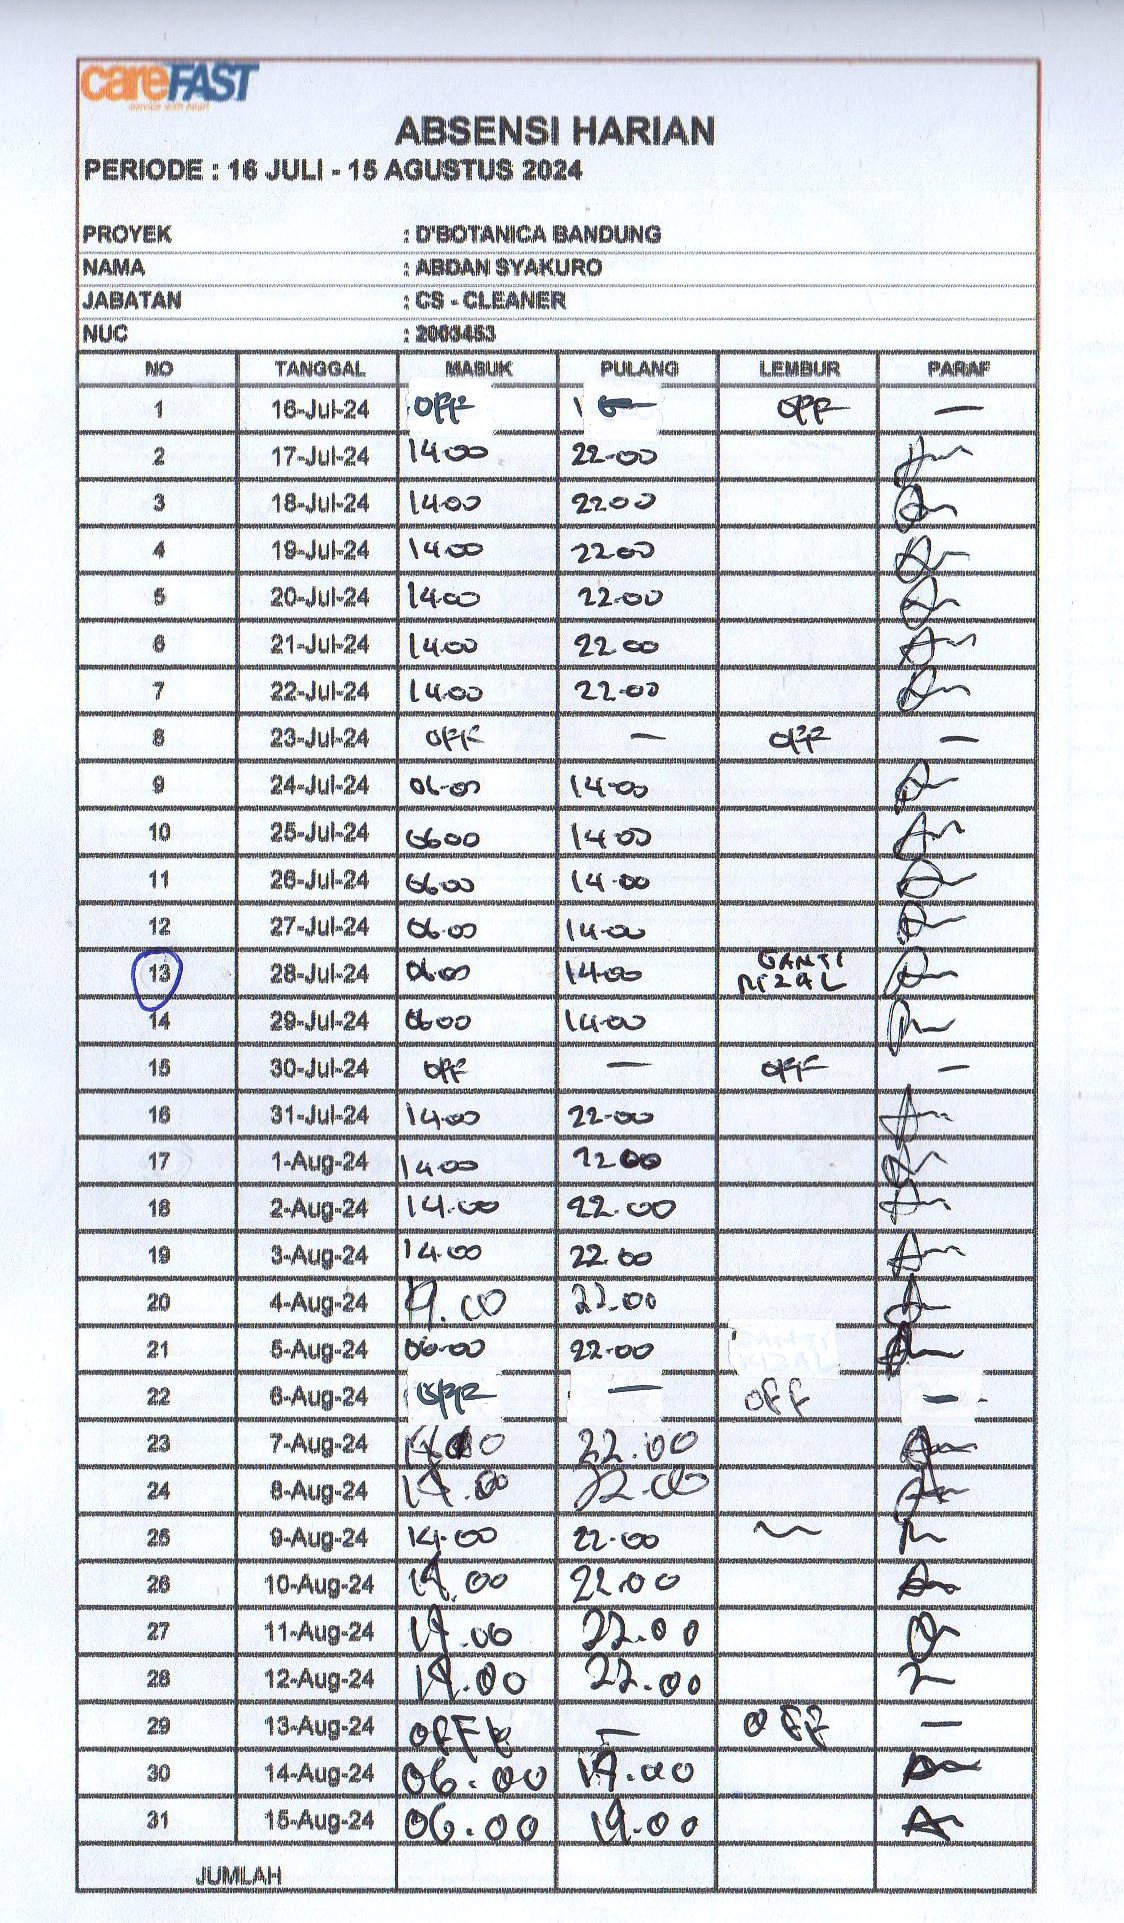 careFAST
service with heart
ABSENSI HARIAN
PERIODE : 16 JULI - 15 AGUSTUS 2024
PROYEK : D'BOTANICA BANDUNG
NAMA : ABDAN SYAKURO
JABATAN : CS - CLEANER
NUC : 2003453
NO TANGGAL MASUK PULANG LEMBUR PARAF
1 16-Jul-24 OFF OFF —
2 17-Jul-24 14.00 22.00
3 18-Jul-24 14.00 22.00
4 19-Jul-24 14.00 22.00
5 20-Jul-24 14.00 22.00
6 21-Jul-24 14.00 22.00
7 22-Jul-24 14.00 22.00
8 23-Jul-24 OFF — OFF —
9 24-Jul-24 06.00 14.00
10 25-Jul-24 06.00 14.00
11 26-Jul-24 06.00 14.00
12 27-Jul-24 06.00 14.00
13 28-Jul-24 06.00 14.00 GANTI RIZAL
14 29-Jul-24 06.00 14.00
15 30-Jul-24 OFF — OFF —
16 31-Jul-24 14.00 22.00
17 1-Aug-24 14.00 22.00
18 2-Aug-24 14.00 22.00
19 3-Aug-24 14.00 22.00
20 4-Aug-24 14.00 22.00
21 5-Aug-24 06.00 22.00
22 6-Aug-24 OFF — OFF —
23 7-Aug-24 22.00
24 8-Aug-24 14.00 22.00
25 9-Aug-24 14.00 22.00
26 10-Aug-24 14.00 22.00
27 11-Aug-24 14.00 22.00
28 12-Aug-24 14.00 22.00
29 13-Aug-24 OFF — OFF —
30 14-Aug-24 06.00 14.00
31 15-Aug-24 06.00 14.00
JUMLAH